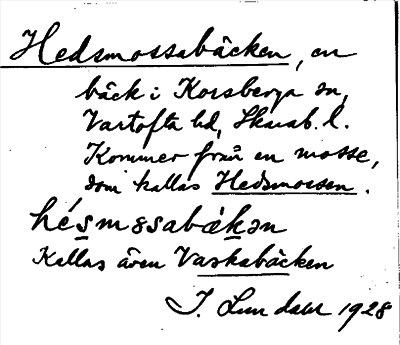 Hedsmossabäcken, en
bäck i Korsberga sn,
Vartofta hd, Skarab. l.
Kommer från en mosse,
som kallas Hedsmossen.
hésmɘsabäkən
Kallas även Vaskabäcken
J. Lundahl 1928